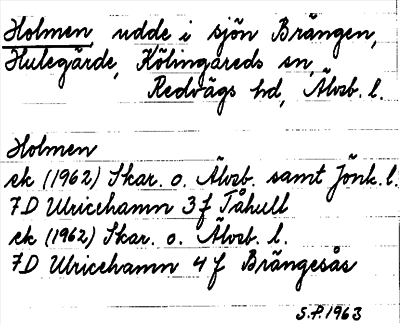 Holmen, udde i sjön Brängen,
Hulegärde, Kölingareds sn,
Redvägs hd, Älvsb. l.
Holmen
ek (1962) Skar. o. Älvsb. samt Jönk. l.
7D Ulricehamn 3f Tåhull
ek (1962) Skar. o. Älvsb. l.
7D Ulricehamn 4f Brängesås
S.P. 1963